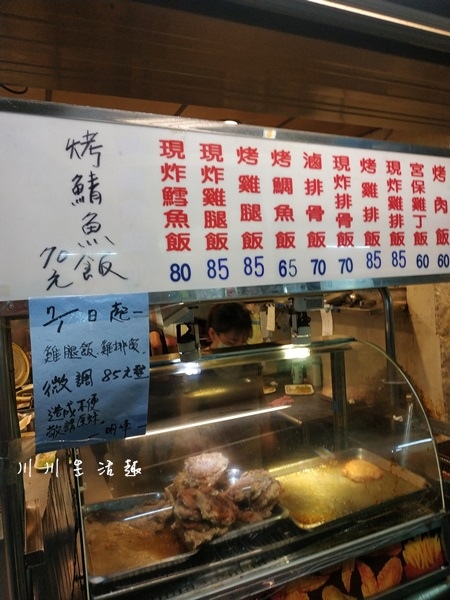 烤肉飯 60
宮保雞丁飯 60
現炸雞排飯 85
烤雞排飯 85
現炸排骨飯 70
滷排骨飯 70
烤鯛魚飯 65
烤雞腿飯 85
現炸雞腿飯 85
現炸鱈魚飯 80
烤鯖魚飯
70元
7/1日起
雞腿飯、雞排飯
微調 85元整
造成不便
敬請見諒
川川生活趣